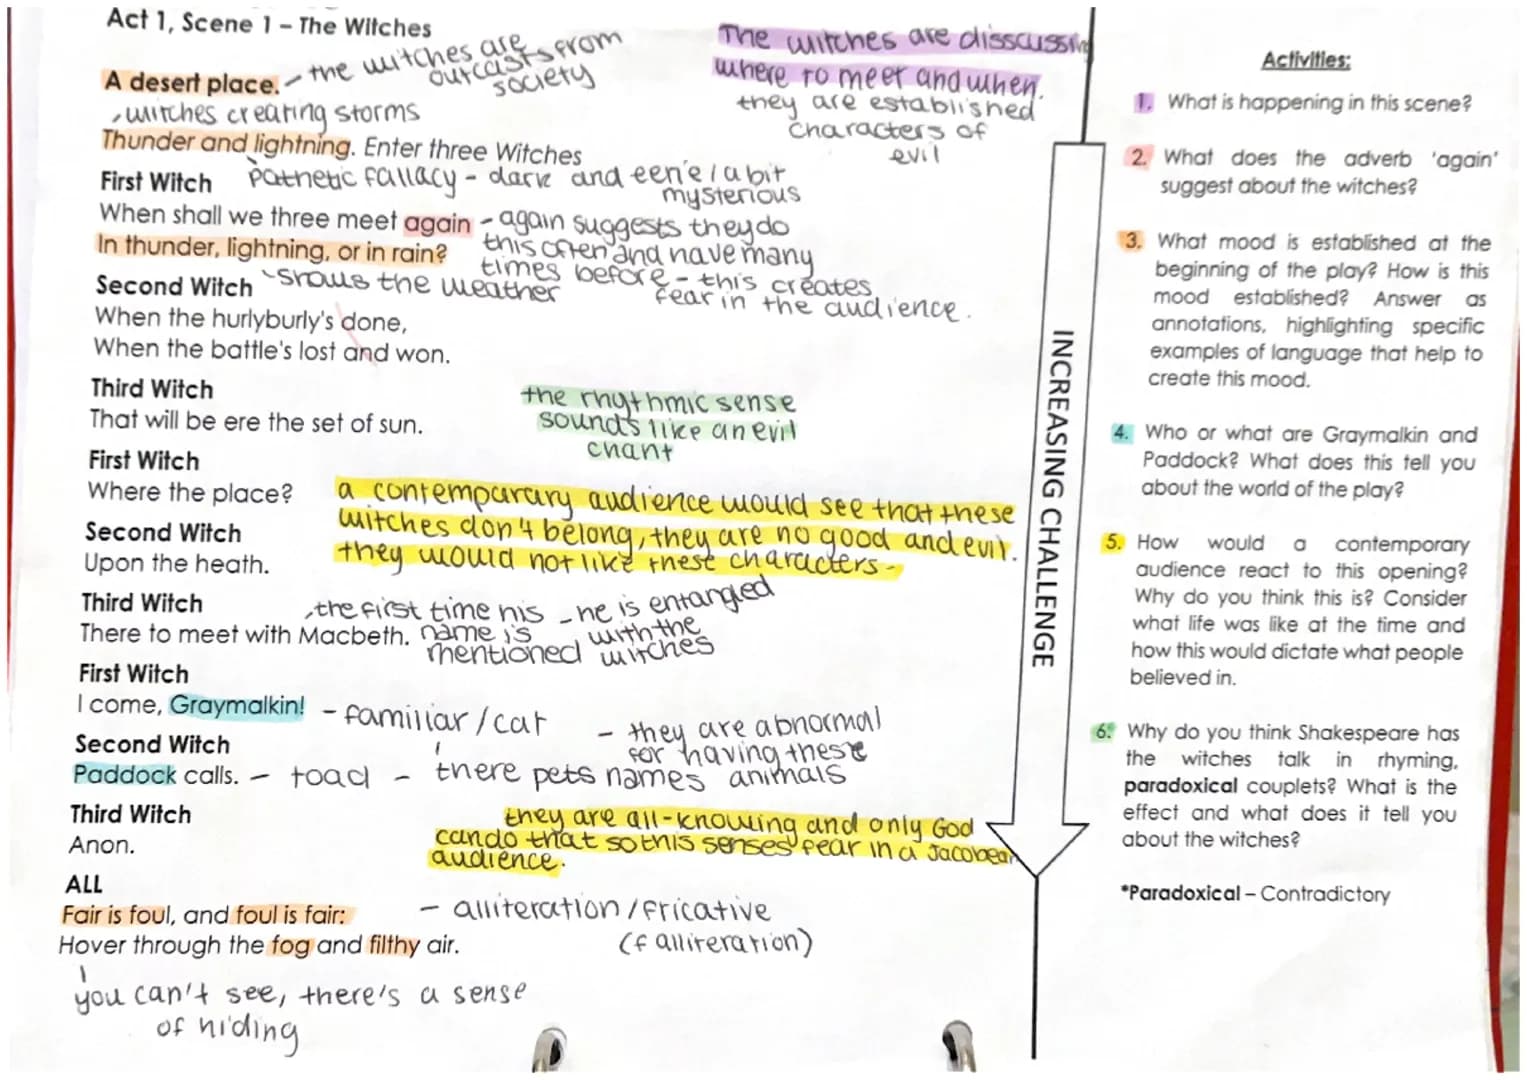 Act 1, Scene 1 – The Witches
A desert place. – the witches are outcasts from society
witches creating storms
Thunder and lightning. Enter three Witches
pathetic fallacy – dark and eerie / a bit mysterious
First Witch
When shall we three meet again – again suggests they do
In thunder, lightning, or in rain? this often and have many
times before – this creates
fear in the audience.
shows the weather
Second Witch
When the hurlyburly's done,
When the battle's lost and won.
Third Witch
That will be ere the set of sun.
First Witch
Where the place?
Second Witch
Upon the heath.
Third Witch
There to meet with Macbeth.
the first time his
name is
mentioned
– he is entangled
with the
witches
First Witch
I come, Graymalkin! – familiar / cat
– they are abnormal
for having these
animals
Second Witch
Paddock calls. – toad – there pets names
Third Witch
Anon.
ALL
Fair is foul, and foul is fair:
Hover through the fog and filthy air.
– alliteration / fricative
(f alliteration)
you can't see, there's a sense
of hiding
The witches are disscussing
where to meet and when.
they are established
characters of
evil
the rhythmic sense
sounds like an evil
chant
a contemparary audience would see that these
witches don't belong, they are no good and evil.
they would not like these characters –
they are all-knowing and only God
can do that so this senses fear in a Jacobean
audience.
INCREASING CHALLENGE
Activities:
1. What is happening in this scene?
2. What does the adverb 'again'
suggest about the witches?
3. What mood is established at the
beginning of the play? How is this
mood established? Answer as
annotations, highlighting specific
examples of language that help to
create this mood.
4. Who or what are Graymalkin and
Paddock? What does this tell you
about the world of the play?
5. How would a contemporary
audience react to this opening?
Why do you think this is? Consider
what life was like at the time and
how this would dictate what people
believed in.
6. Why do you think Shakespeare has
the witches talk in rhyming,
paradoxical couplets? What is the
effect and what does it tell you
about the witches?
*Paradoxical – Contradictory